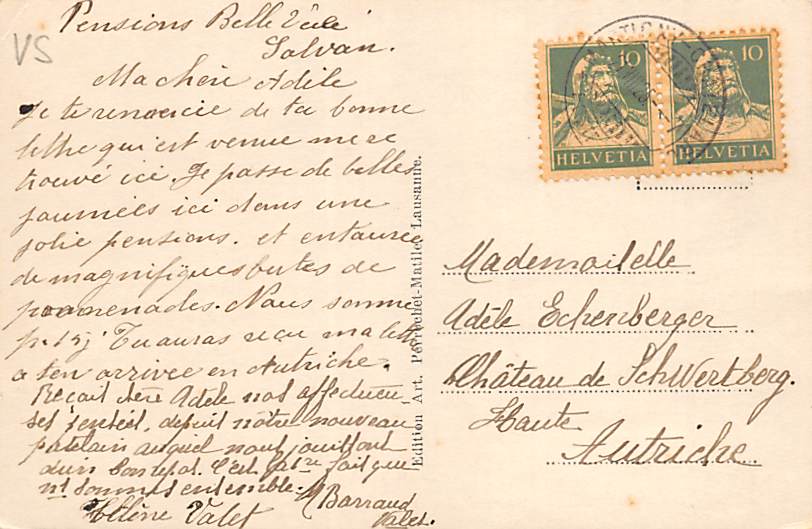 VS
Pensions Belle Vue
Salvan.
Ma chère Adèle
Je te remercie de ta bonne
lettre qui est venue me re
trouvé ici. Je passe de belles
journées ici dans une
jolie pensions. et entourée
de magnifiques buts de
promenades. Nous somme
p. 15j Tu auras reçu ma lettre
a ton arrivée en Autriche.
Reçoit chère Adèle nos affectueu
ses pensées, depuis nôtre nouveau
patelain auquel nous jouissont
d'un bon repos. C'est
nt sommes ensemble. M Barraud
Hélène Valet
Valet.
Edition Art. Perrochet-Matile, Lausanne.
10
HELVETIA
10
HELVETIA
Mademoiselle
Adèle Echenberger
Château de Schwertberg.
Haute
Autriche